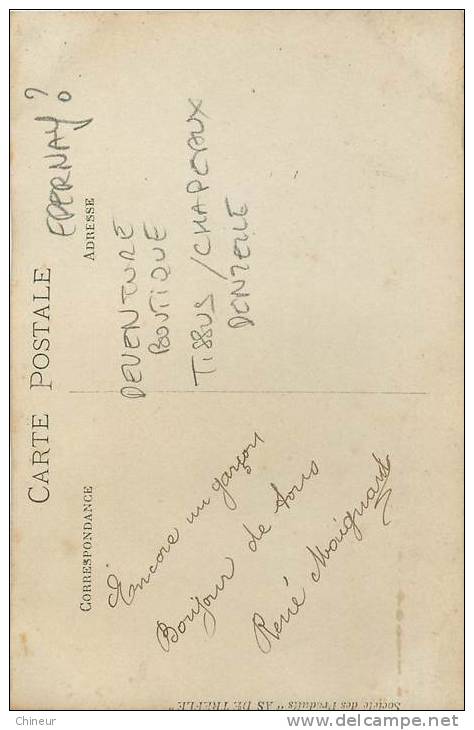 CARTE POSTALE
CORRESPONDANCE
ADRESSE
EPERNAY ?
DEVENTURE
BOUTIQUE
TISSUS / CHAPEAUX
DENTELLE
Encore un garçon
Bonjour de tous
René Maignard
Société des Produits "AS DE TREFLE"
Chineur
www.delcampe.net